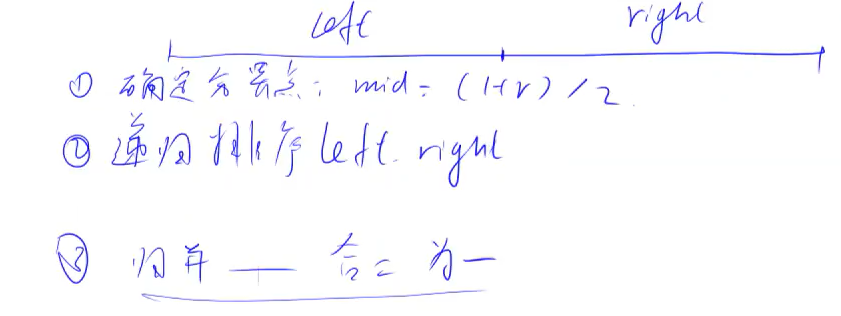 left right
① 确定分界点: mid = (l+r)/2.
② 递归排序 left. right
③ 归并 —— 合二为一